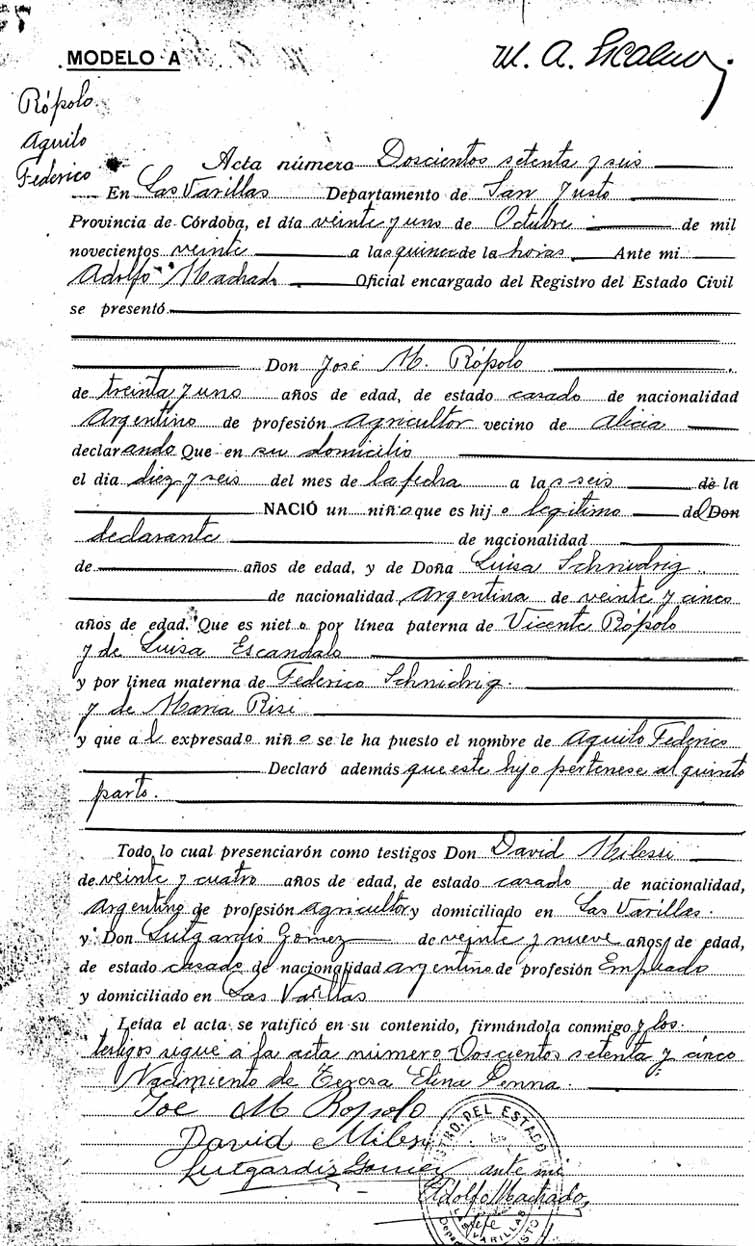 MODELO A
Rópolo
Aquito
Federico
Acta número Doscientos setenta y seis
En Las Varillas Departamento de San Justo
Provincia de Córdoba, el día veinte y uno de Octubre de mil
novecientos veinte a las quince de la horas. Ante mi
Adolfo Machado Oficial encargado del Registro del Estado Civil
se presentó
Don José M. Rópolo
de treinta y uno años de edad, de estado casado de nacionalidad
Argentino de profesión Agricultor vecino de Alicia
declarando Que en su domicilio
el día diez y seis del mes de la fecha a las seis de la
NACIÓ un niño que es hijo legítimo del Don
declarante de nacionalidad
de años de edad, y de Doña Luisa Schnidrig
de nacionalidad Argentina de veinte y cinco
años de edad. Que es nieto por línea paterna de Vicente Rópolo
y de Luisa Escandalo
y por línea materna de Federico Schnidrig.
y de Maria Risi
y que al expresado niño se le ha puesto el nombre de Aquito Federico
Declaró además que este hijo pertenese al quinto
parto.
Todo lo cual presenciarón como testigos Don David Milesi
de veinte y cuatro años de edad, de estado casado de nacionalidad,
Argentino de profesión agricultor y domiciliado en Las Varillas.
y Don Lutgardis Gomez de veinte y nueve años de edad,
de estado casado de nacionalidad argentino de profesión Empleado
y domiciliado en Las Varillas
Leída el acta se ratificó en su contenido, firmándola conmigo y los
testigos sigue a la acta número Doscientos setenta y cinco
Nacimiento de Teresa Elena Penna.
Joé M Ropolo
David Milesi
Lutgardis Gomez ante mi
Adolfo Machado
Jefe
REGISTRO DEL ESTADO
LAS VARILLAS